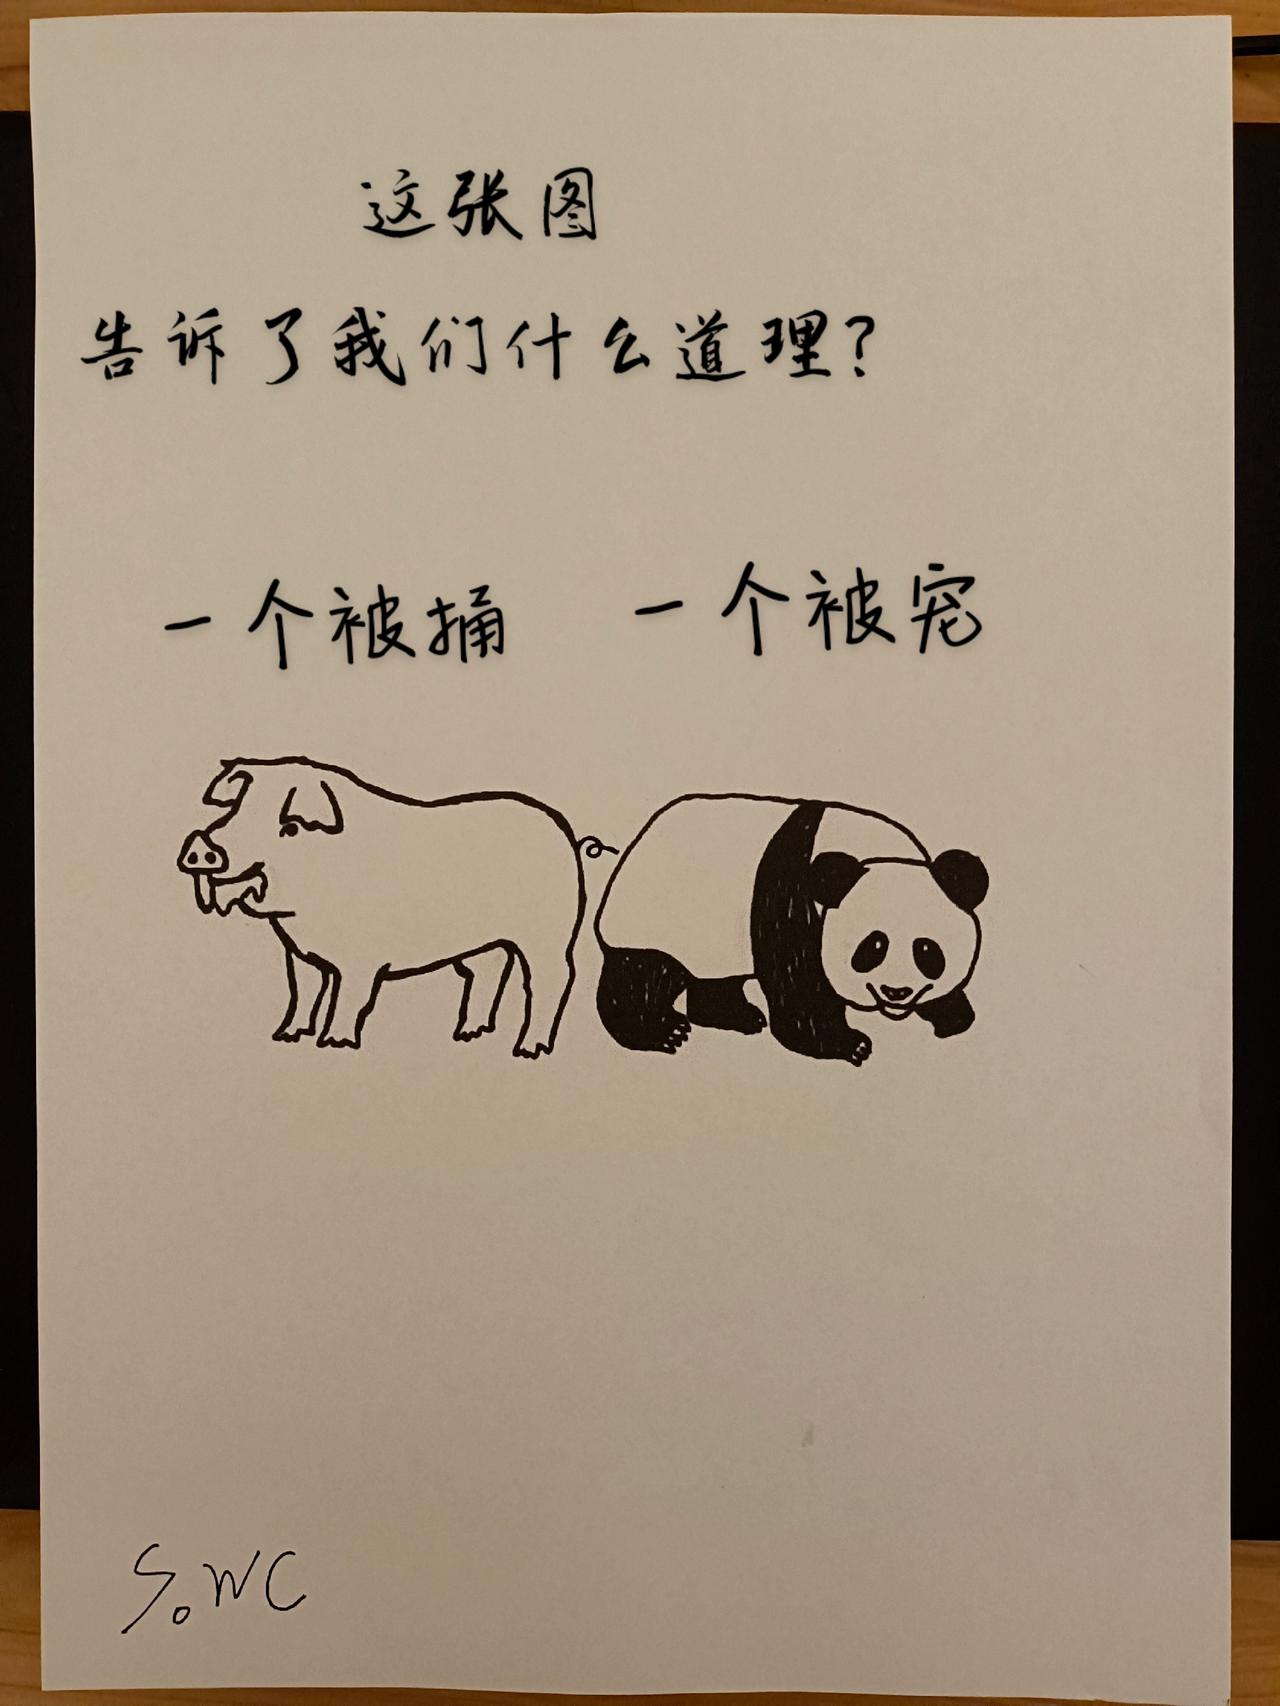 这张图
告诉了我们什么道理?
一个被捅 一个被宠
S.WC